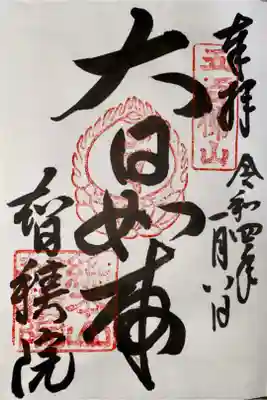 奉拝
令和四年
一月八日
大日如来
智積院
五百佛山